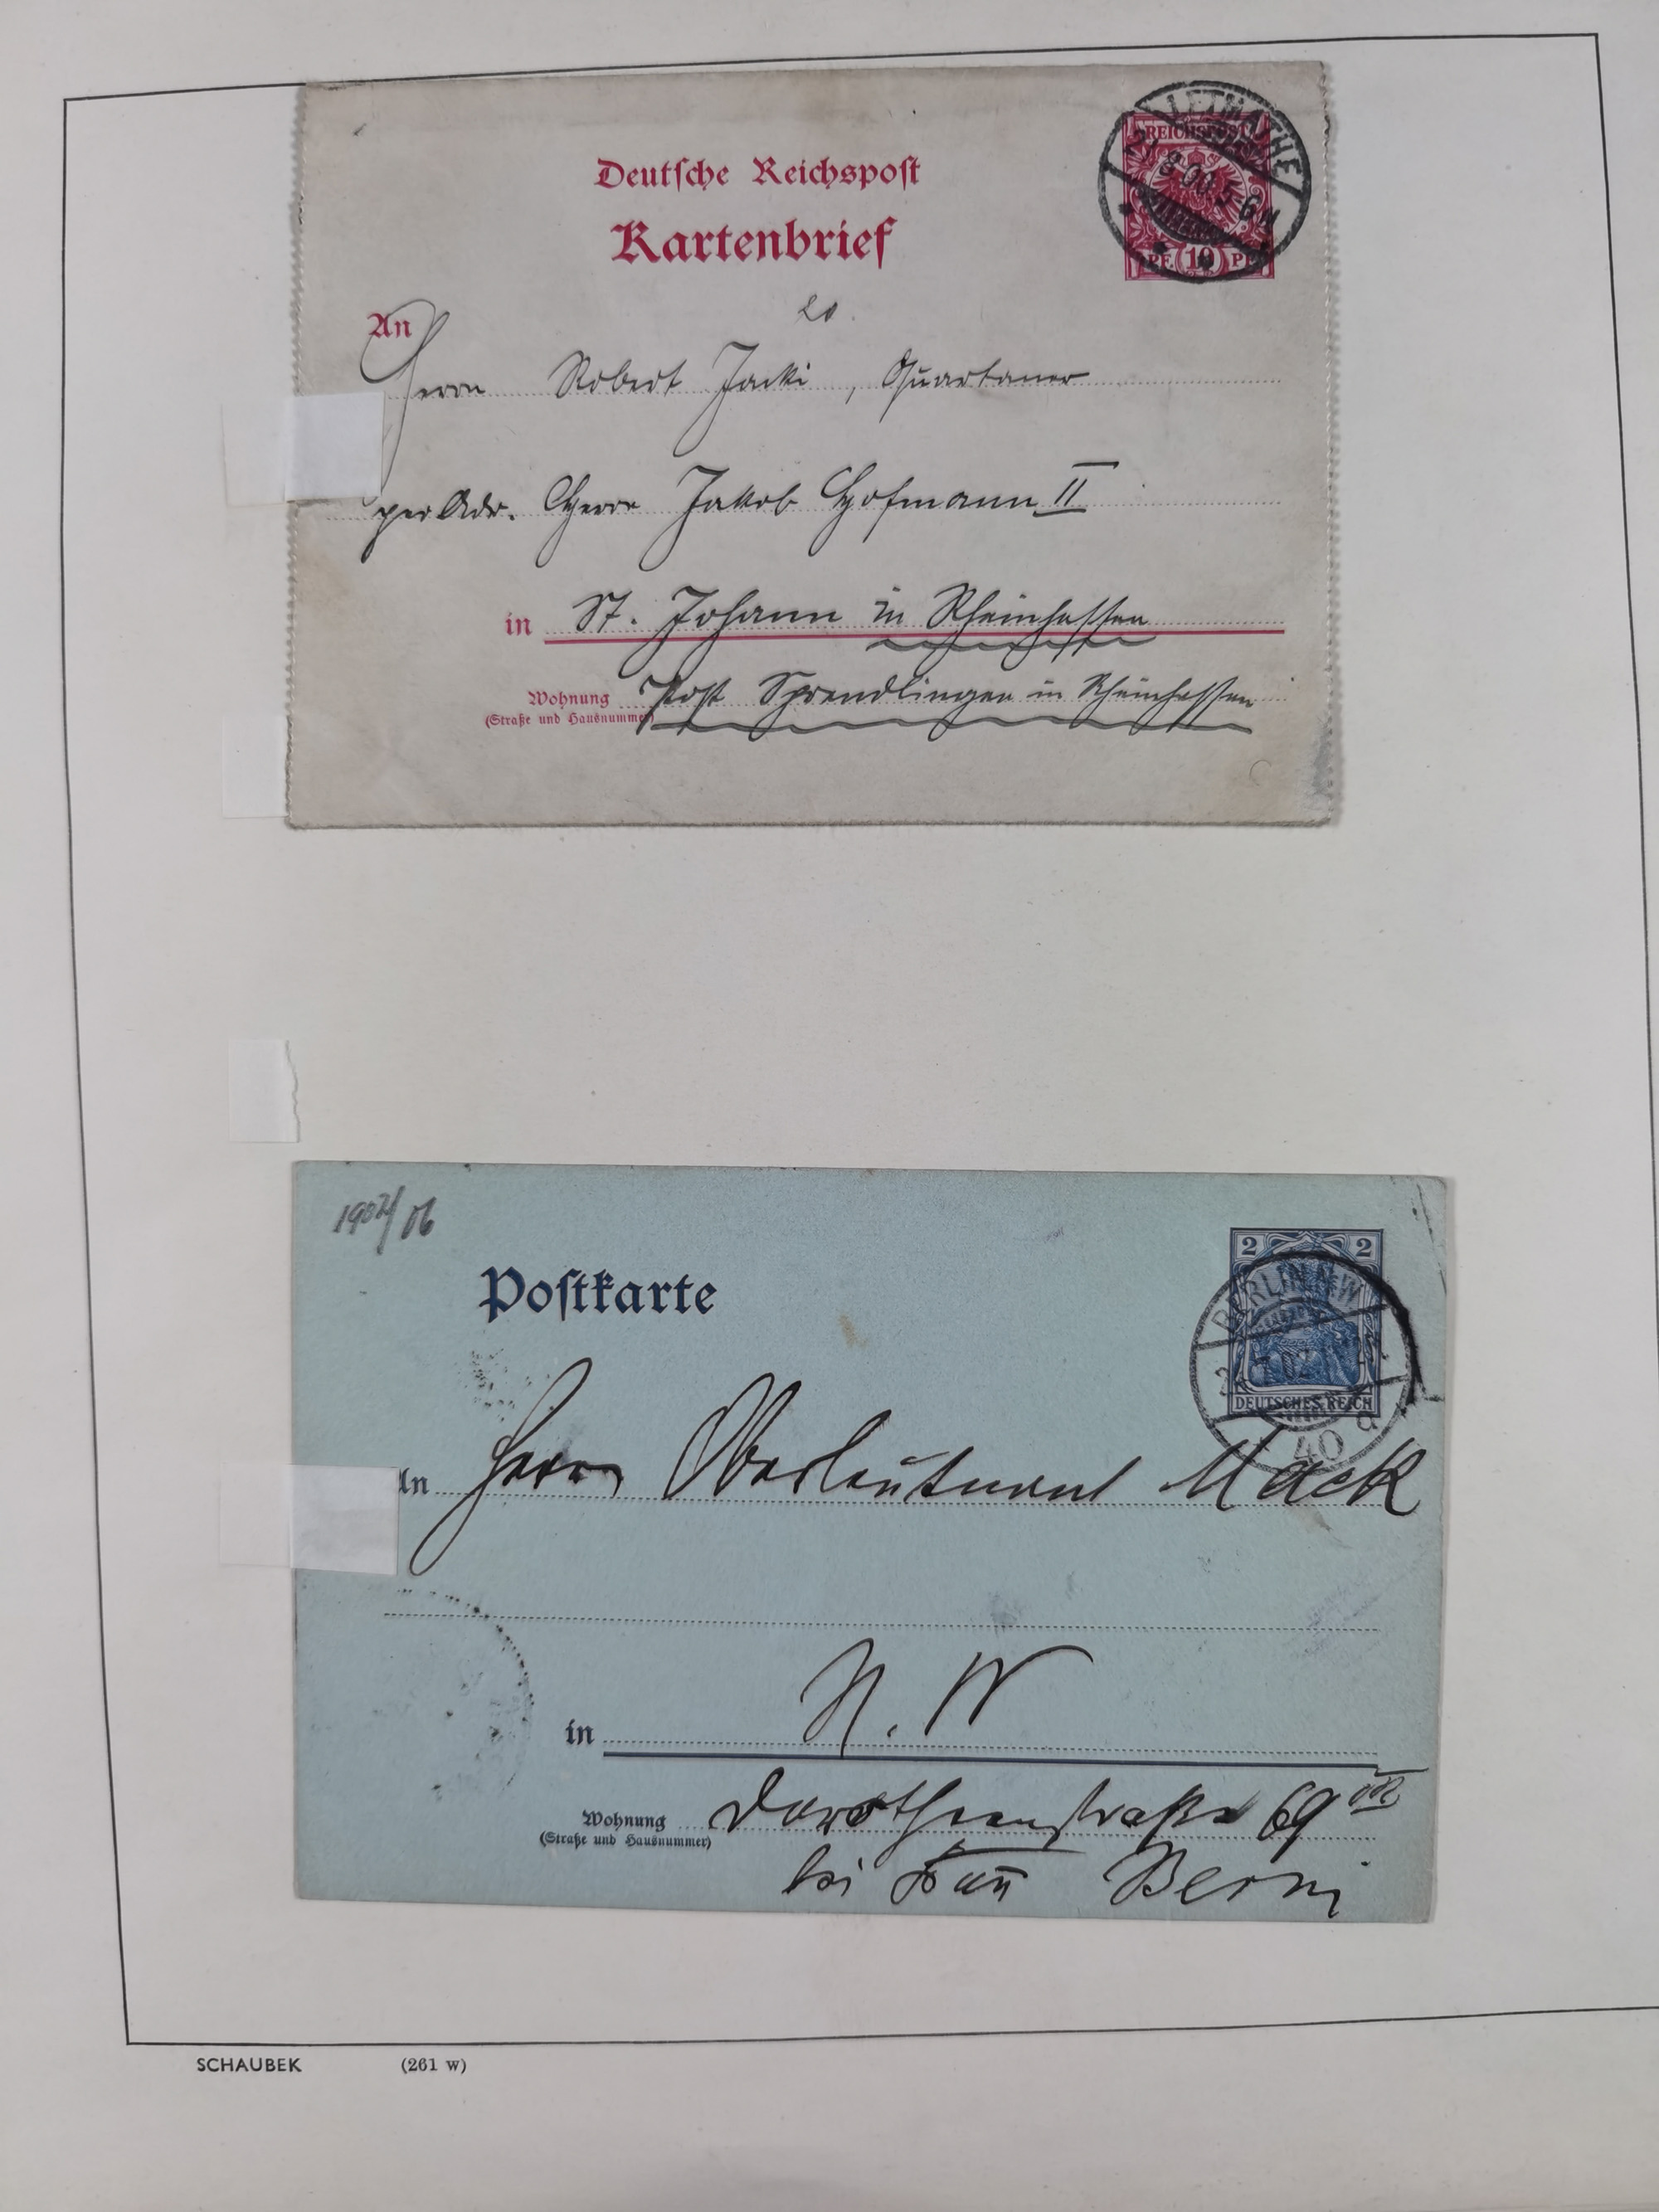 Deutsche Reichspost
Kartenbrief
LETMATHE
8.00.5-6N
REICHSPOST
PF. 10 PF.
20.
An
Herrn Robert Jacki, Quartaner
per Adr. Herrn Jakob Hofmann II
in St. Johann in Rheinhessen
Wohnung Post Sprendlingen in Rheinhessen
(Straße und Hausnummer)
1902/06
Postkarte
2 2
BERLIN NW
02
DEUTSCHES REICH
40 a
An Herrn Oberleutnant Mack
in N. W
Wohnung Dorotheenstraße 69 III
(Straße und Hausnummer)
bei Frau Berni
SCHAUBEK (261 W)